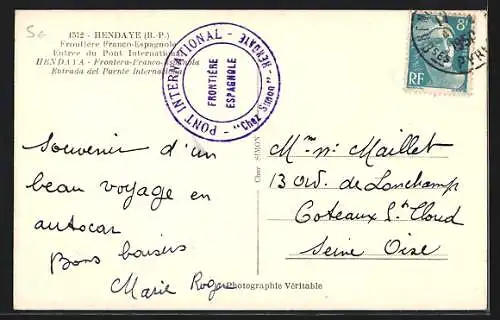 5e
1512 - HENDAYE (B.-P.)
Frontière Franco-Espagnole
Entrée du Pont International
HENDAYA - Frontera-Franco-Española
Entrada del Puente Internacional
- PONT INTERNATIONAL - HENDAYE
"Chez Simon"
FRONTIÈRE
ESPAGNOLE
8F
RF
Souvenir d'un
beau voyage en
autocar
Bons baisers
Marie Roger
Chez SIMON
Maillet
13 de Lonchamp
Coteaux St Cloud
Seine Oise
Photographie Véritable